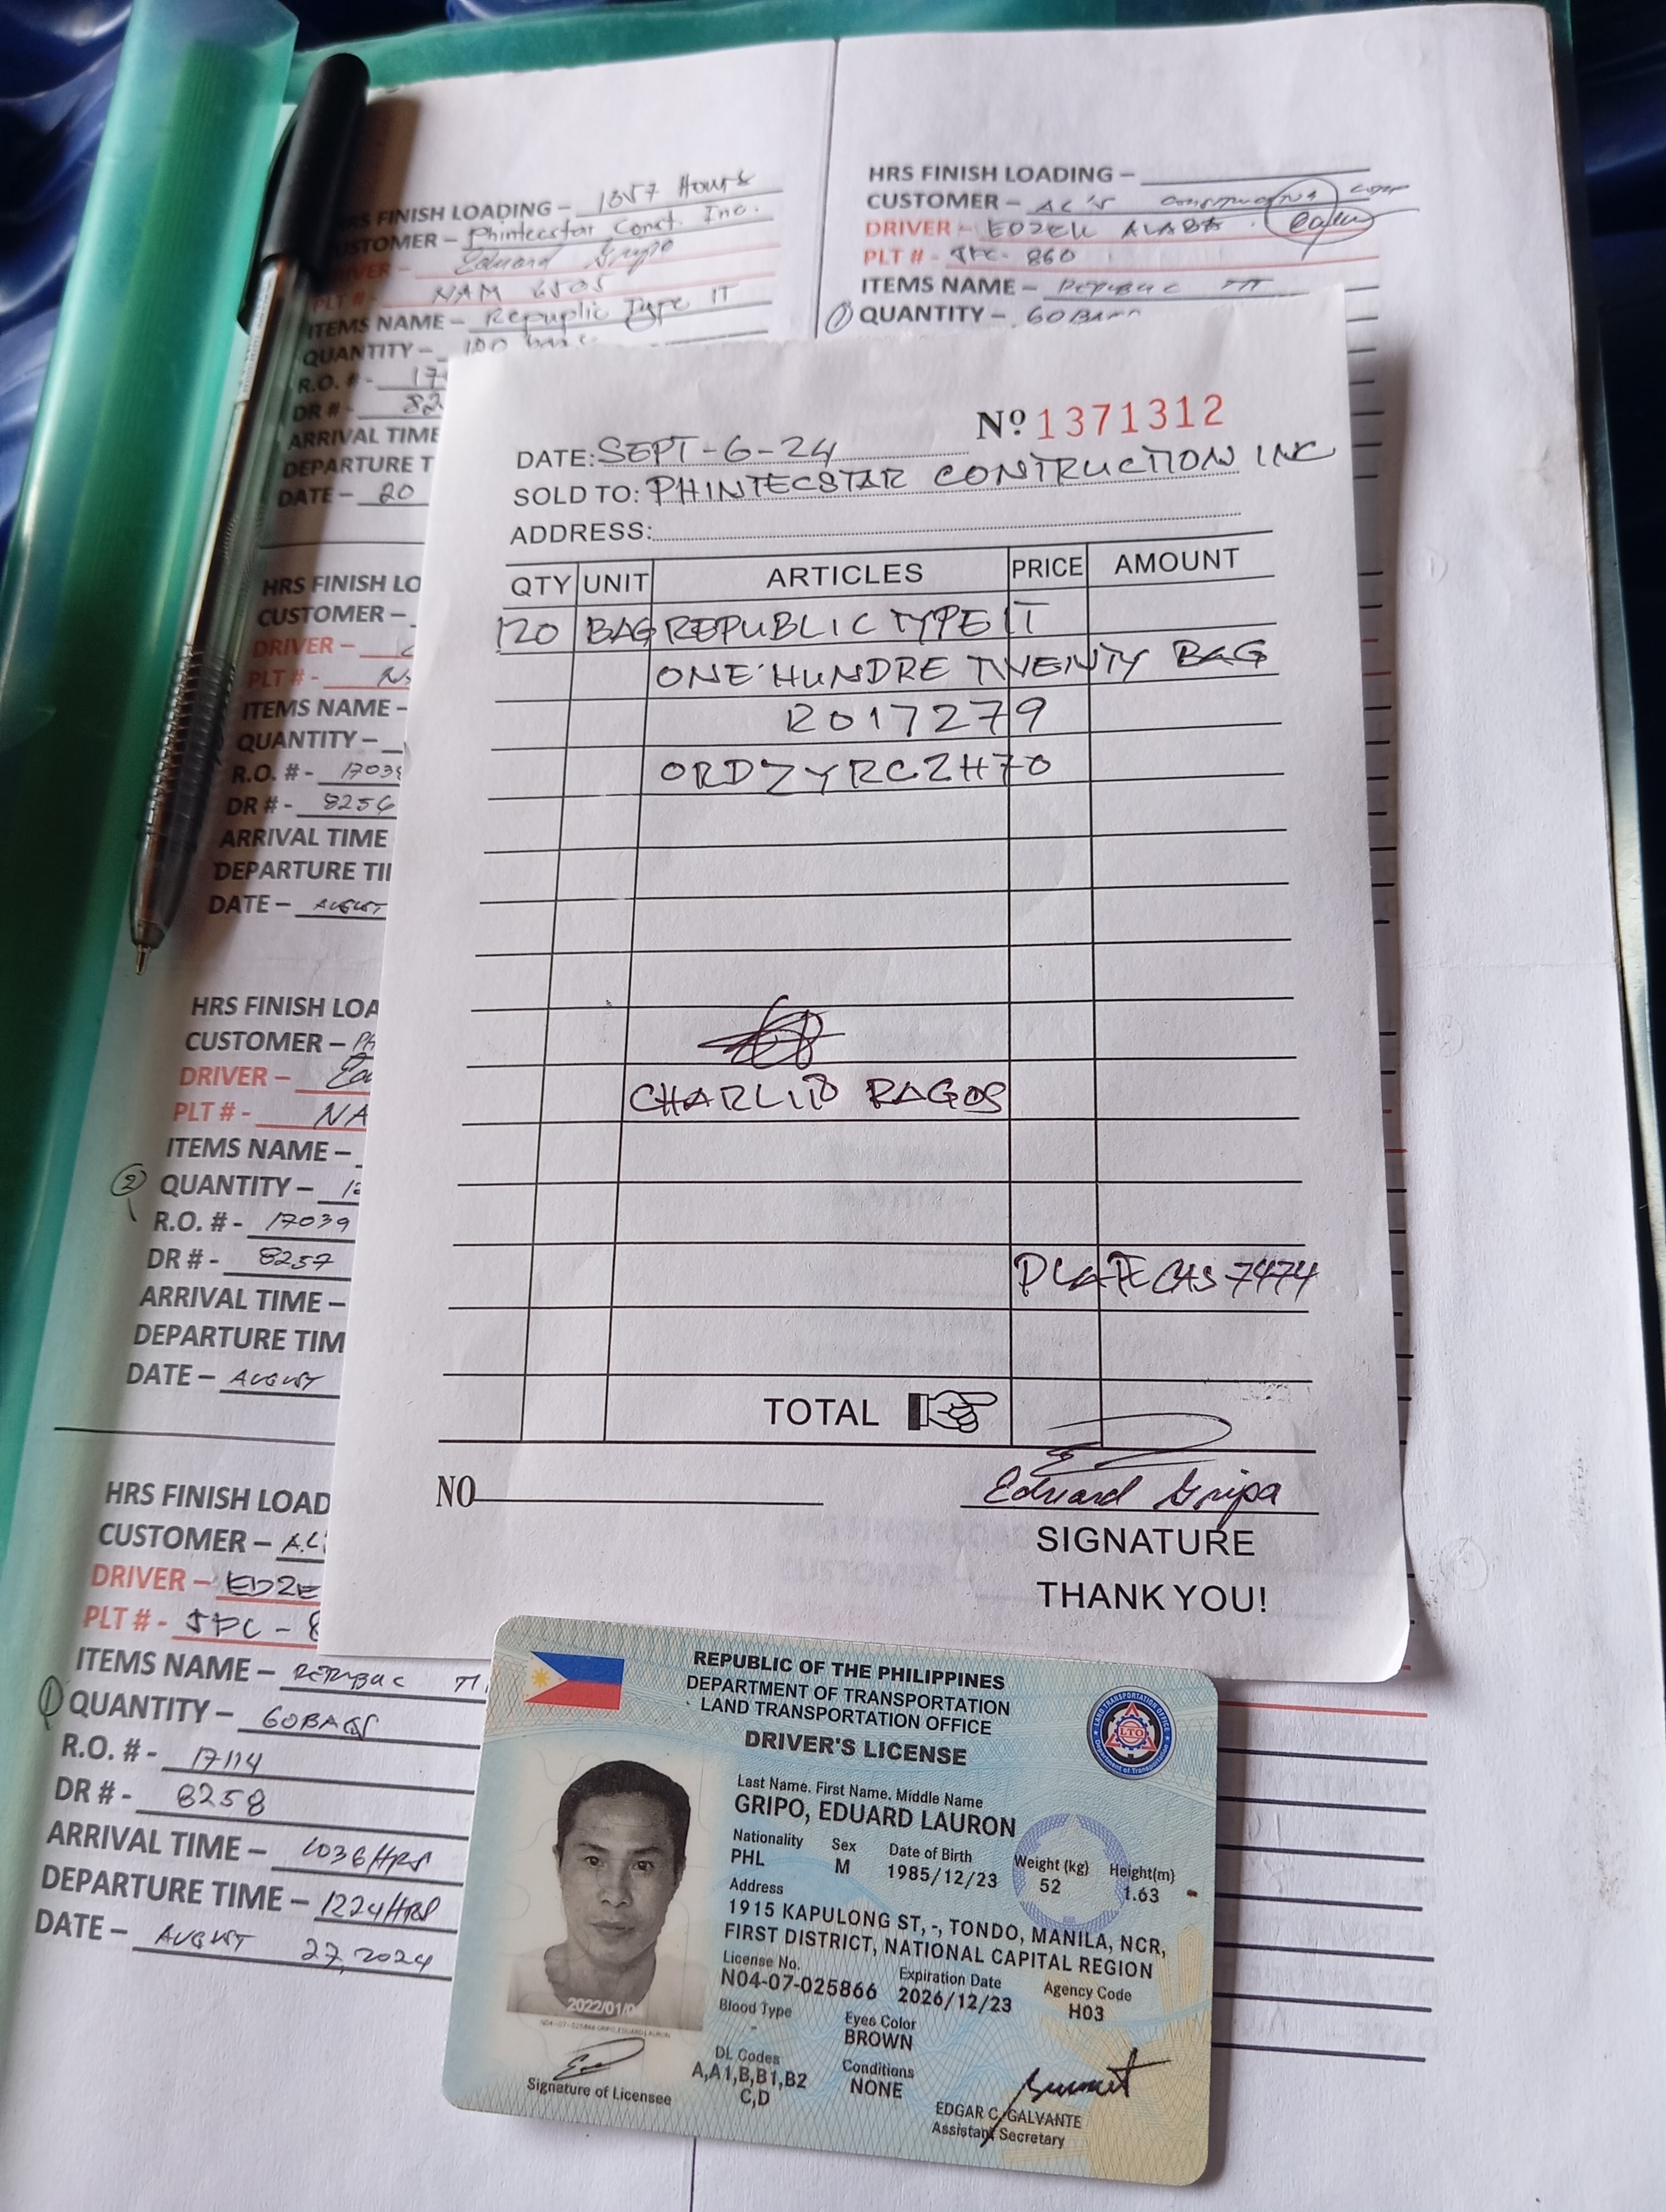 HRS FINISH LOADING – 1357 Hours
CUSTOMER – Phintecstar Const. Inc.
Eduard Gripo
PLT # - NAM 6505
ITEMS NAME – Repuplic Type IT
QUANTITY –
R.O. # - 17
DR # - 82
ARRIVAL TIME
DEPARTURE T
DATE – 20
HRS FINISH LO
CUSTOMER –
DRIVER –
PLT # -
ITEMS NAME –
QUANTITY –
R.O. # - 17039
DR # - 8256
ARRIVAL TIME
DEPARTURE TII
DATE – AUGUST
HRS FINISH LOA
CUSTOMER – PH
DRIVER – Edu
PLT # - NA
ITEMS NAME –
② QUANTITY – 12
R.O. # - 17039
DR # - 8257
ARRIVAL TIME –
DEPARTURE TIM
DATE – AUGUST
HRS FINISH LOAD
CUSTOMER – AC'
DRIVER – EDZE
PLT # - JPC - 8
ITEMS NAME – REPUBLIC TI
① QUANTITY – 60BAGS
R.O. # - 17114
DR # - 8258
ARRIVAL TIME – 1036HRS
DEPARTURE TIME – 1224HRS
DATE – AUGUST 27, 2024
HRS FINISH LOADING –
CUSTOMER – AC'S CONSTRUCTION CORP
DRIVER – EDZEL
PLT # - JPC- 860
ITEMS NAME – REPUBLIC
① QUANTITY – 60 BA
Nº 1371312
DATE: SEPT-6-24
SOLD TO: PHINTECSTAR CONTRUCTION INC
ADDRESS:
QTY UNIT ARTICLES PRICE AMOUNT
120 BAG REPUBLIC TYPE IT
ONE HUNDRE TWENTY BAG
RO17279
ORDZYRCZH70
CHARLIE RAGOS
PLATE CAS 7474
TOTAL
NO
Eduard Gripo
SIGNATURE
THANK YOU!
REPUBLIC OF THE PHILIPPINES
DEPARTMENT OF TRANSPORTATION
LAND TRANSPORTATION OFFICE
LAND TRANSPORTATION OFFICE
LTO
Department of Transportation
DRIVER'S LICENSE
Last Name, First Name, Middle Name
GRIPO, EDUARD LAURON
Nationality Sex Date of Birth Weight (kg) Height(m)
PHL M 1985/12/23 52 1.63
Address
1915 KAPULONG ST, -, TONDO, MANILA, NCR,
FIRST DISTRICT, NATIONAL CAPITAL REGION
License No. Expiration Date Agency Code
N04-07-025866 2026/12/23 H03
Blood Type Eyes Color
- BROWN
DL Codes Conditions
A,A1,B,B1,B2 NONE
C,D
2022/01/0
N04-07-025866 GRIPO, EDUARD LAURON
Signature of Licensee
EDGAR C. GALVANTE
Assistant Secretary